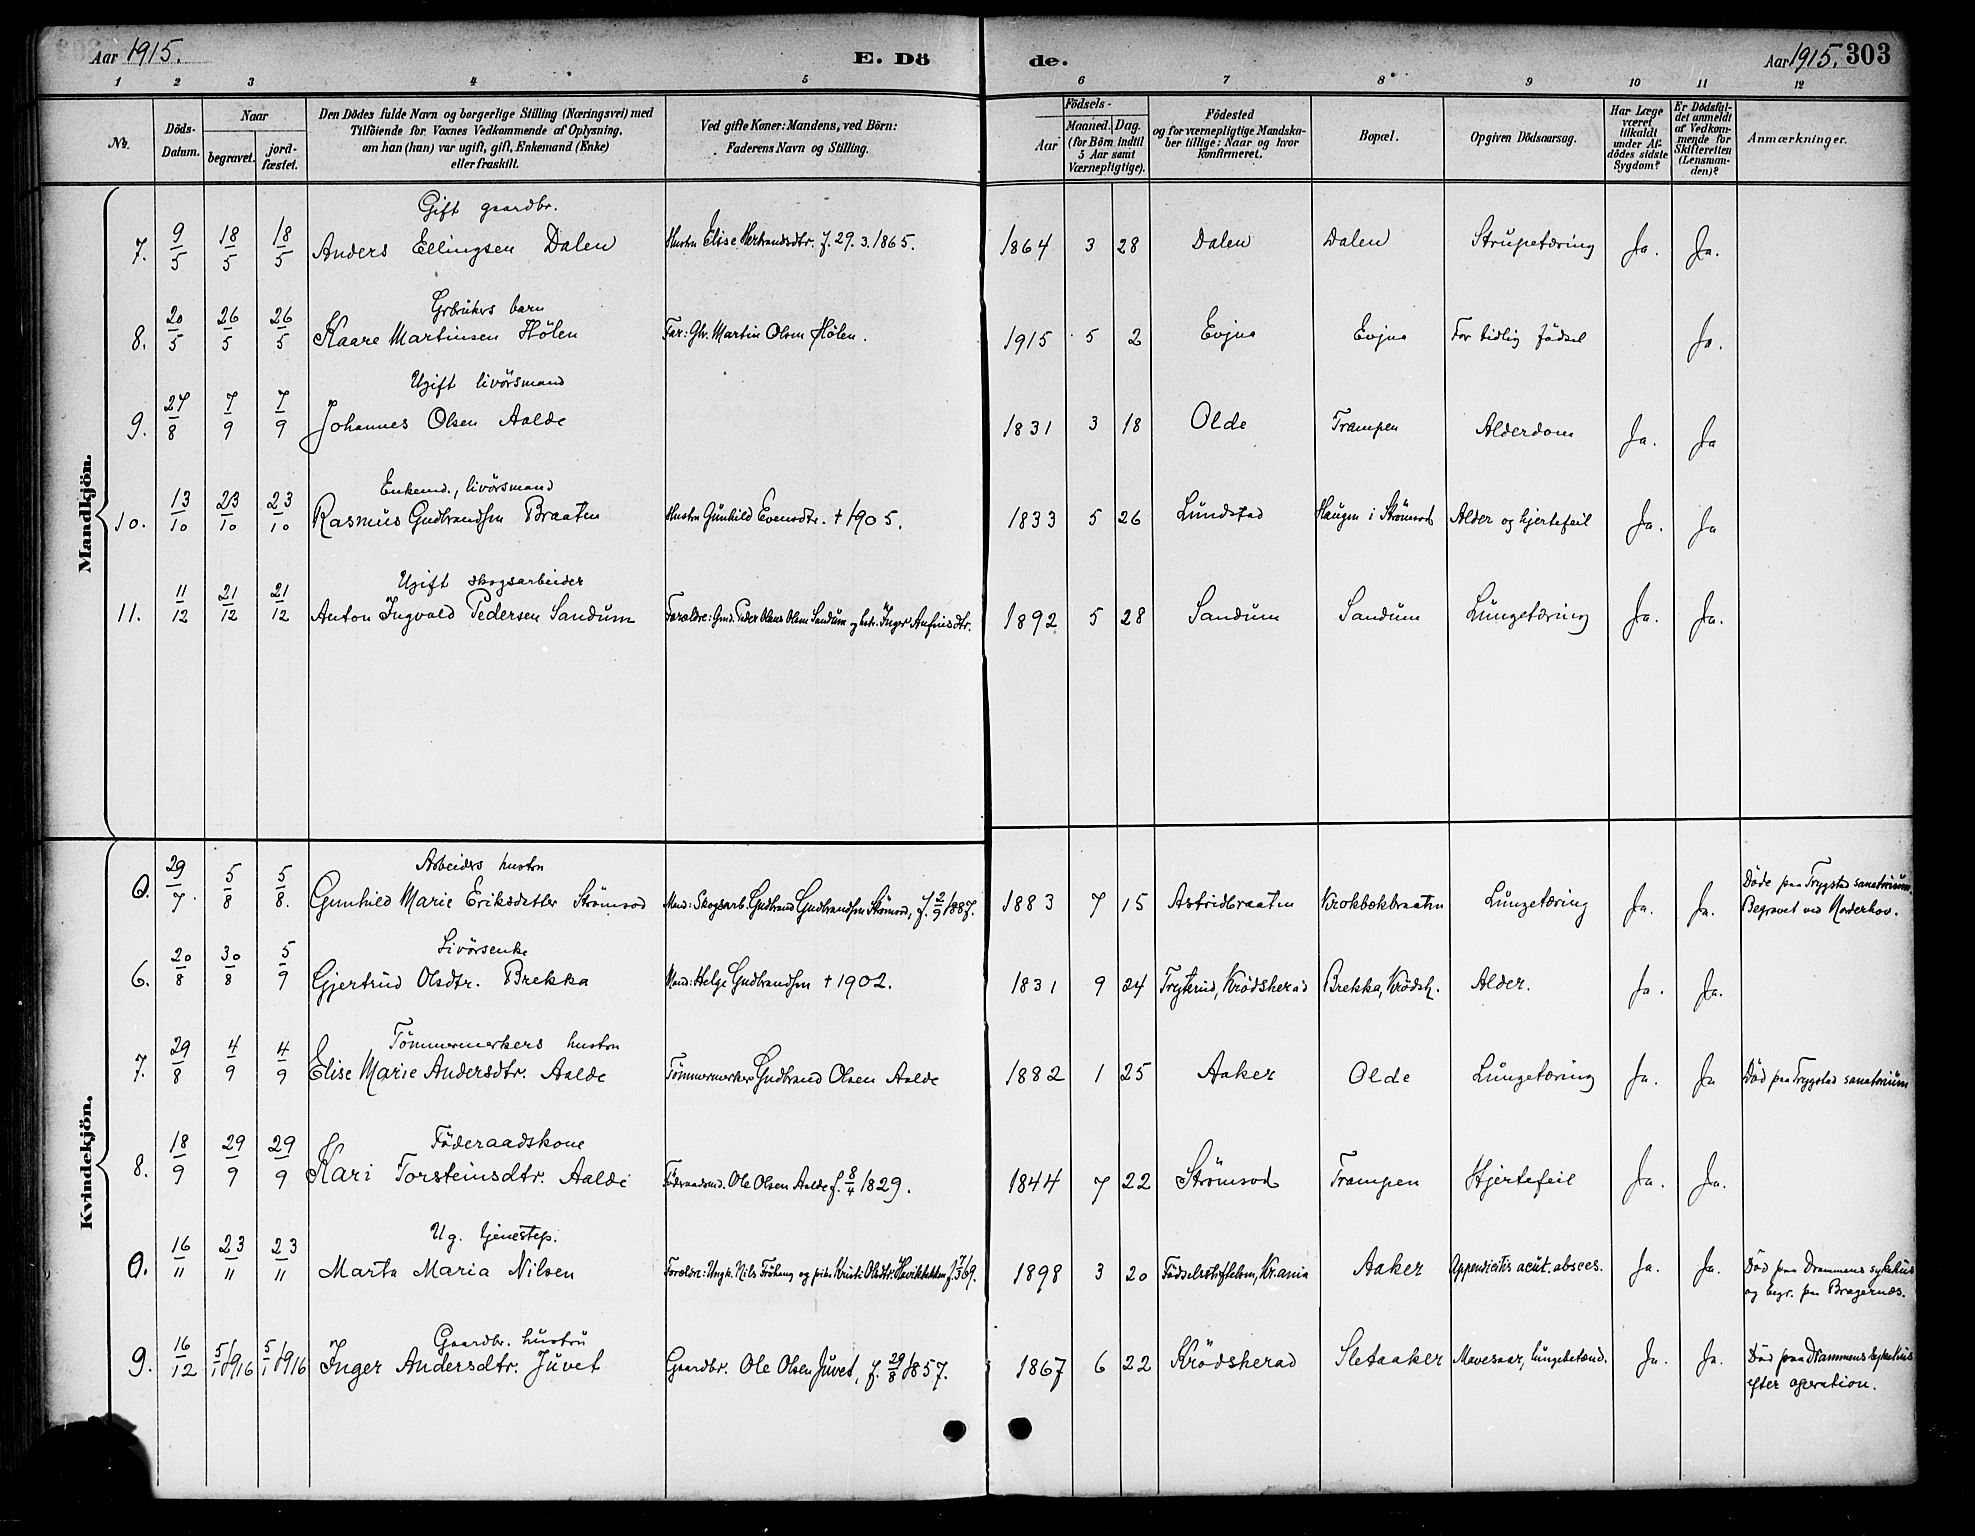 Aar 1915. E. Dö de. Aar 1915. 303
1 2 3 4 5 6 7 8 9 10 11 12
No. Döds-Datum. Naar begravet. jord-fæstet. Den Dödes fulde Navn og borgerlige Stilling (Næringsvei) med Tilföiende for Voxnes Vedkommende af Oplysning, om han (hun) var ugift, gift, Enkemand (Enke) eller fraskilt. Ved gifte Koner: Mandens, ved Börn: Faderens Navn og Stilling. Födsels- Aar Maaned. Dag. (for Börn indtil 5 Aar samt Værnepligtige). Födested og for værnepligtige Mandskaber tillige: Naar og hvor konfirmeret. Bopæl. Opgiven Dödsaarsag. Har Læge været tilkaldt under Afdödes sidste Sygdom? Er Dödsfaldet anmeldt af Vedkommende for Skifteretten (Lensmanden)? Anmærkninger.
Mandkjön.
Gift gaardbr.
7. 9/5 18/5 18/5 Anders Ellingsen Dalen Hustru Elise Hertrandsdtr. f. 29.3.1865. 1864 3 28 Dalen Dalen Strupetæring Ja. Ja.
Grbrukers barn
8. 20/5 26/5 26/5 Kaare Martinsen Hölen Far: Gbr. Martin Olsen Hölen. 1915 5 2 Evjua Evjua For tidlig födsel Ja.
Ugift livörsmand
9. 27/8 7/9 7/9 Johannes Olsen Aalde 1831 3 18 Olde Trampen Alderdom Ja. Ja
Enkemd., livörsmand
10. 13/10 23/10 23/10 Rasmus Gudbrandsen Braaten Hustru Gunhild Evensdtr. † 1905. 1833 5 26 Lundstad Haugen i Strömsod Alder og hjertefeil Ja. Ja
Ugift skogsarbeider
11. 11/12 21/12 21/12 Anton Ingvald Pedersen Sandum Forældre: Gmd. Peder Olaus Olsen Sandum og hstr. Inger Anfinsdtr. 1892 5 28 Sandum Sandum Lungetæring Ja. Ja.
Kvindekjön.
Arbeiders hustru
0. 29/7. 5/8 5/8. Gunhild Marie Eriksdatter Strömsod Mand: Skogsarb. Gudbrand Gudbrandsen Strömsod, f. 2/9 1887. 1883 7 15 Astridbraaten Krokbækbraaten Lungetæring Ja. Ja. Döde paa Trygstad sanatorium. Begravet ved Norderhov.
Livörsenke
6. 20/8 30/8 5/9 Gjertrud Olsdtr. Brekka Mand: Helge Gudbrandsen † 1902. 1831 9 24 Trytterud, Krödsherad Brekka, Krödsh. Alder. Ja. Ja.
Tömmermerkers hustru
7. 29/8 4/9 4/9 Elise Marie Andersdtr. Aalde Tömmermerker Gudbrand Olsen Aalde 1882 1 25 Aaker Olde Lungetæring Ja. Ja Död paa Trygstad sanatorium
Föderaadskone
8. 18/9 29/9 29/9 Kari Torsteinsdtr. Aalde Föderaadsmd. Ole Olsen Aalde f. 8/4 1829. 1844 7 22 Strömsod Trampen Hjertefeil Ja. Ja.
Ug. tjenestep.
0. 16/11 23/11 23/11 Marta Maria Nilsen Forældre: Ungk. Nils Fröhaug og pike Kristi Olsdtr. f. 7/3 69. 1898 3 20 Födselsstiftelsen, Kr.ania Aaker Appendicitis acut. absces. Ja. Ja. Död paa Drammens sykehus og begr. paa Bragernæs.
Gaardbr. hustru
9. 16/12 5/1 1916 5/1 1916 Inger Andersdtr. Juvet Gaardbr. Ole Olsen Juvet, f. 29/8 1857. 1867 6 22 Krödsherad Sletaaker Mavesaar, lungebetænd. Ja. Ja. Död paa Drammens sykehus efter operation.